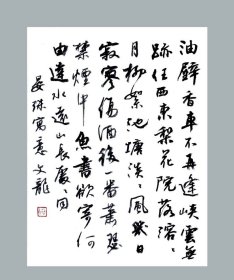 油壁香車不再逢峽雲無
跡任西東梨花院落溶〻
月柳絮池塘淡〻風幾日
寂寥傷酒後一番蕭瑟
禁煙中魚書欲寄何
由達水遠山長處〻同
晏殊寓意文龍